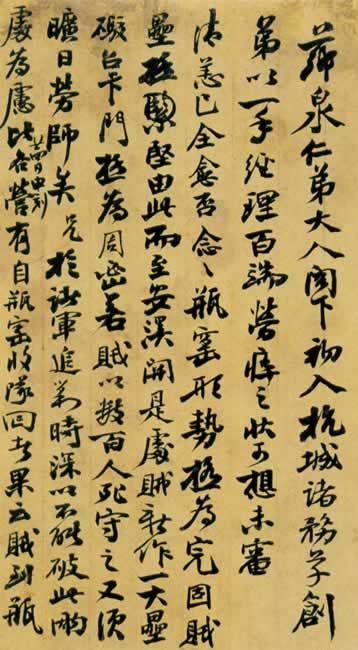 薌泉仁弟大人閣下初入杭城諸務草創
弟以一手經理百端勞瘁之狀可想未審
清恙已全愈否念〻瓶窰形勢極為完固賊
壘極緊堅由此而至安溪聞是處賊新作一大壘
礮台卡門極為周密若賊以數百人死守之又須
曠日勞師矣兄於諸軍追剿時深以不能破此兩
處為慮比廿四日申刻各營有自瓶窰收隊回者果云賊到瓶